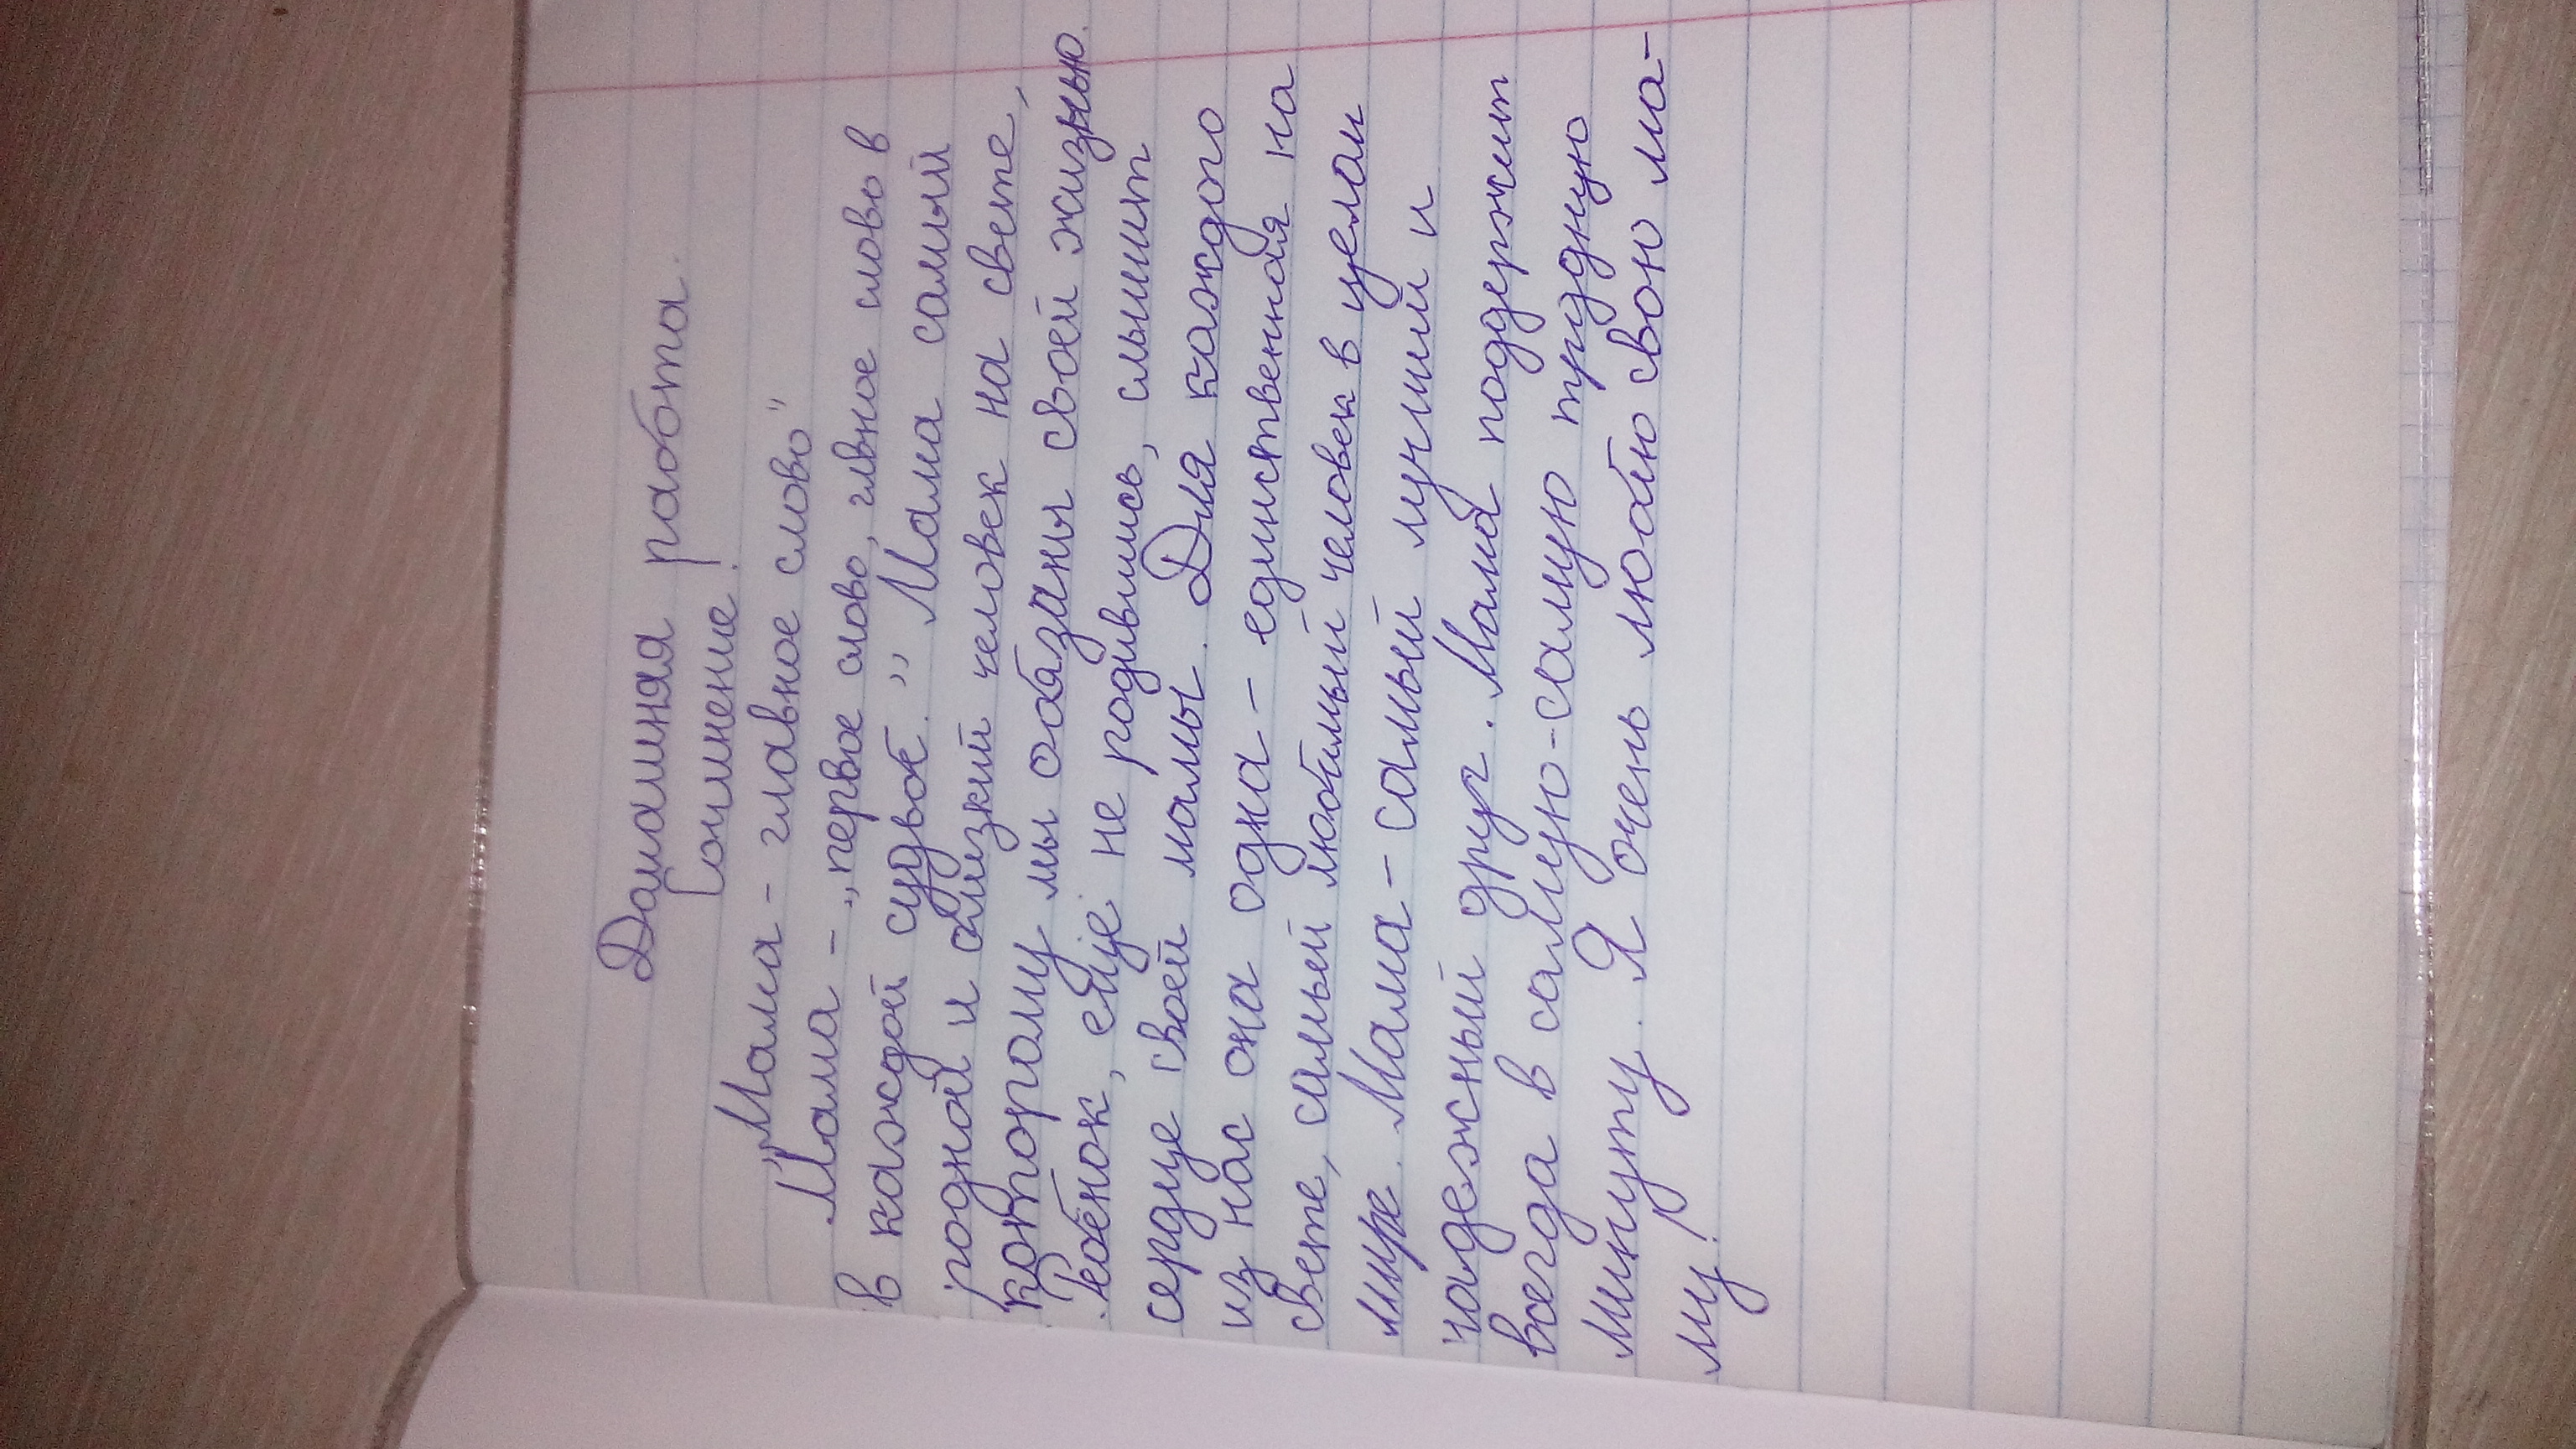 Домашняя работа.
Сочинение!
„Мама - главное слово"
Мама - „первое слово, главное слово в
в каждой судьбе." Мама самый
родной и близкий человек на свете,
которому мы обязаны своей жизнью.
Ребёнок, ещё не родившись, слышит
сердце своей мамы. Для каждого
из нас она одна - единственная на
свете, самый любимый человек в целом
мире. Мама - самый лучший и
надежный друг. Мама поддержит
всегда в самую-самую трудную
минуту. Я очень люблю свою ма-
му!